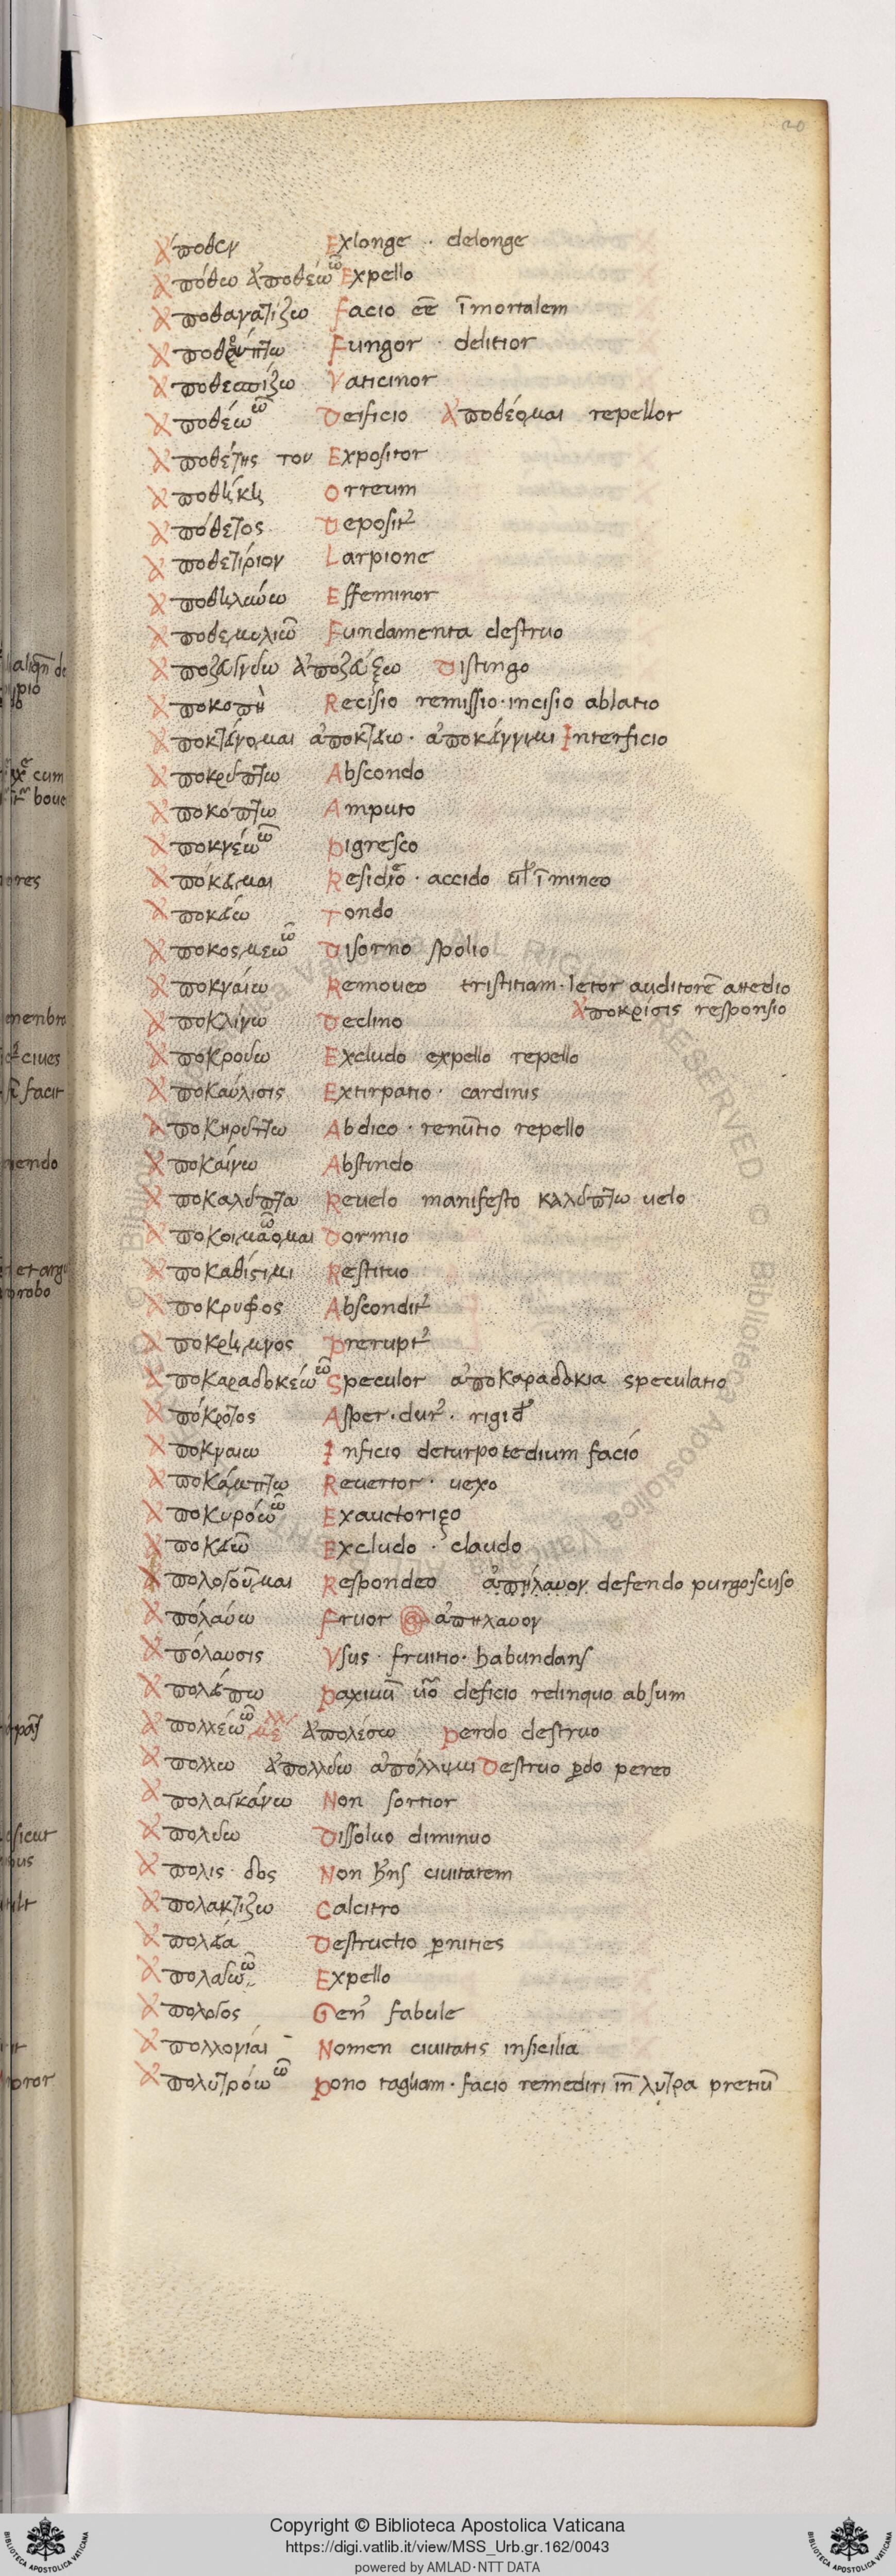 20
Ἄποθεν Exlonge · delonge
Ἀπόθω ἀποθέω ῶ Expello
Ἀποθανατίζω Facio eē īmortalem
Ἀποθρύπτω Fungor · delitior
Ἀποθεσπίζω Vaticinor
Ἀποθέω ῶ Deificio Ἀποθέομαι repellor
Ἀποθέτης του Expositor
Ἀποθήκη Orreum
Ἀπόθετος Deposit᾽
Ἀποθετίριον Larpione
Ἀποθηλαύω Effeminor
Ἀποθεμελιῶ Fundamenta destruo
Distingo
Ἀποκοπὴ Recisio remissio · incisio ablatio
Ἀποκτείνομαι ἀποκτείω · ἀποκάννιμι Interficio
Ἀποκρύπτω Abscondo
Ἀποκόπτω Amputo
Ἀποκνέω ῶ Pigresco
Ἀπόκειμαι Resideo · accido ul᾽ īmineo
Ἀποκείω Tondo
Ἀποκοσμεω ῶ Disorno spolio
Ἀποκναίω Removeo tristitiam · letor auditorē attedio
Ἀποκρίσις responsio
Ἀποκλίνω Declino
Ἀποκρούω Excludo expello repello
Ἀποκαύλισις Extirpatio · cardinis
Ἀποκηρύττω Abdico · renūtio repello
Ἀποκαίνω Abstindo
Ἀποκαλύπτω Revelo manifesto καλύπτω uelo
Ἀποκοιμάομαι ῶ Dormio
Ἀποκαθίστιμι Restituo
Ἀποκρυφος Abscondit᾽
Ἀποκρημνος Prerupt᾽
Ἀποκαραδοκέω ῶ Speculor ἀποκαραδοκια speculatio
Ἀπόκροτος Asper · dur᾽ · rigid᾽
Ἀποκναιω Inficio deturpo tedium facio
Ἀποκάμπτω Revertor · uexo
Ἀποκυρόω ῶ Exauctorizo
Ἀποκλειῶ Excludo · claudo
Ἀπολογοῦμαι Respondeo ἀπήλαυον defendo purgo · scuso
Ἀπολαύω Fruor ἀπηλαυον
Ἀπόλαυσις Vsus · fruitio · habundans
Ἀπολείπω deficio relinquo absum
Ἀπολλέω ῶ ἀπολέσω Perdo destruo
Ἀπολλω ἀπολλύω ἀπόλλυμι Destruo ꝑdo pereo
Ἀπολαγκάνω Non sortior
Ἀπολύω Dissoluo diminuo
Ἀπολις · δος Non hn̄s ciuitatem
Ἀπολακτιζω Calcitro
Ἀπολεία Destructio ꝑnities
Expello
Ἀπολογος Gen᾽ fabule
Ἀπολλονίαι Nomen ciuitatis insicilia
Ἀπολυτρόω ῶ Pono · facio remediri īn λυτρα pretiū
Copyright © Biblioteca Apostolica Vaticana
https://digi.vatlib.it/view/MSS_Urb.gr.162/0043
powered by AMLAD·NTT DATA